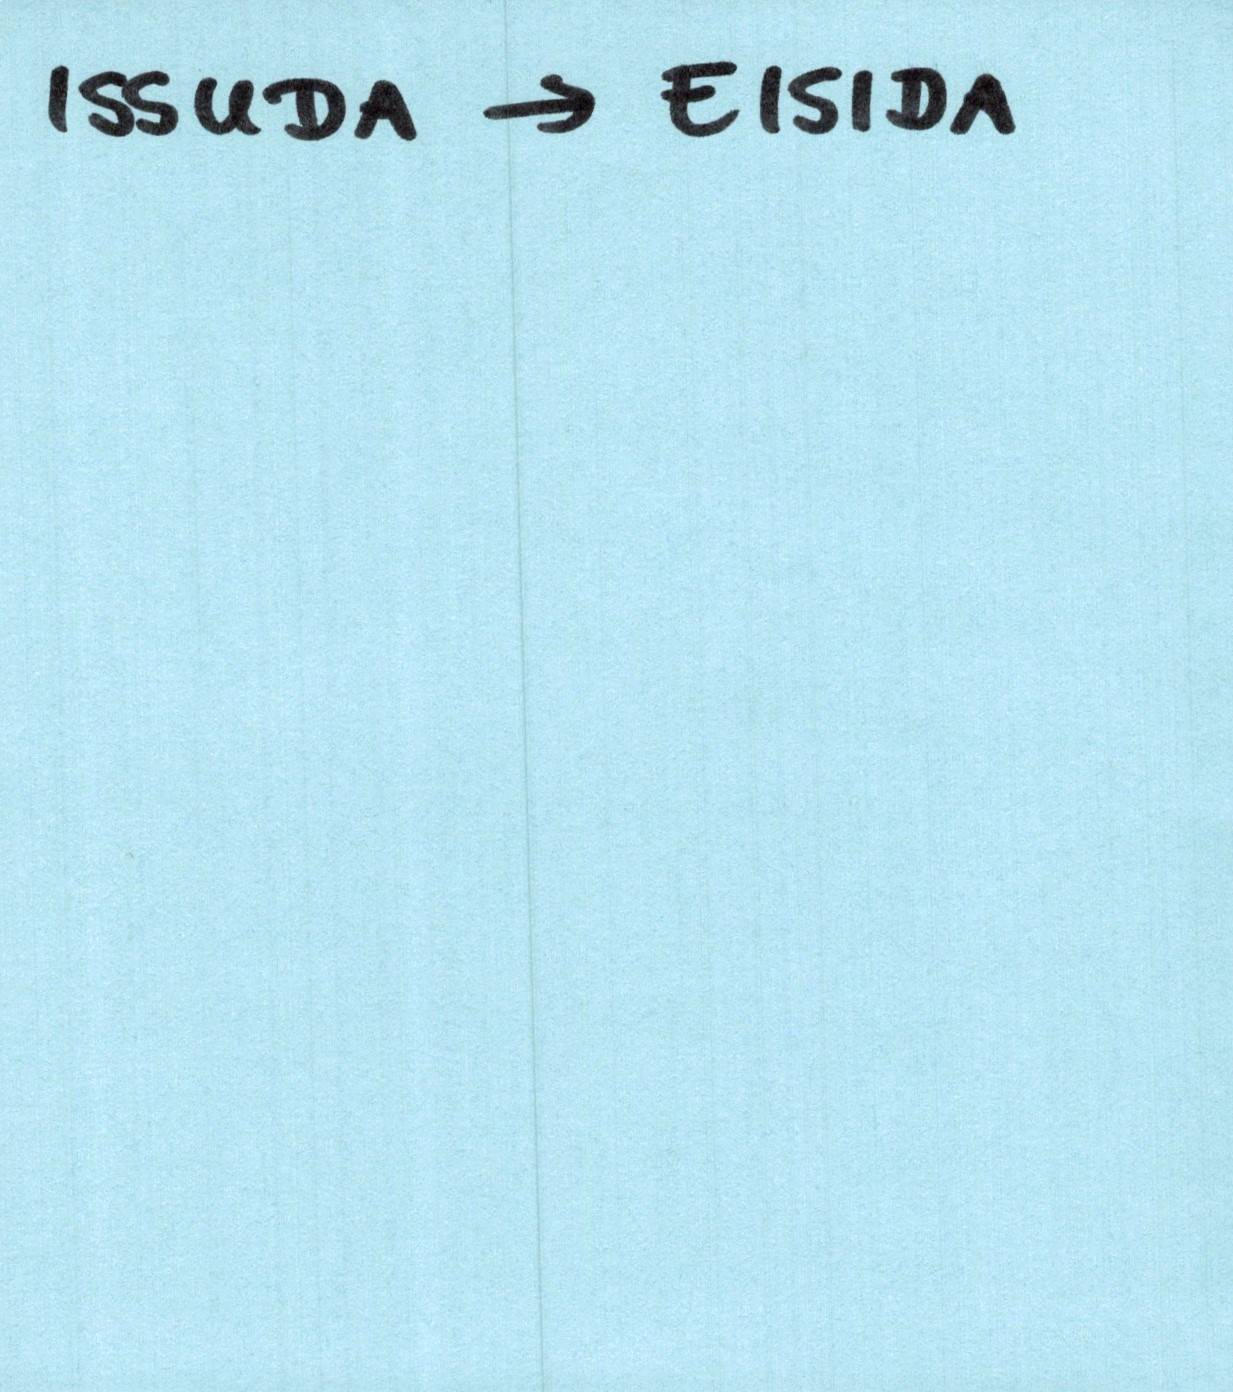 ISSUDA → EISIDA